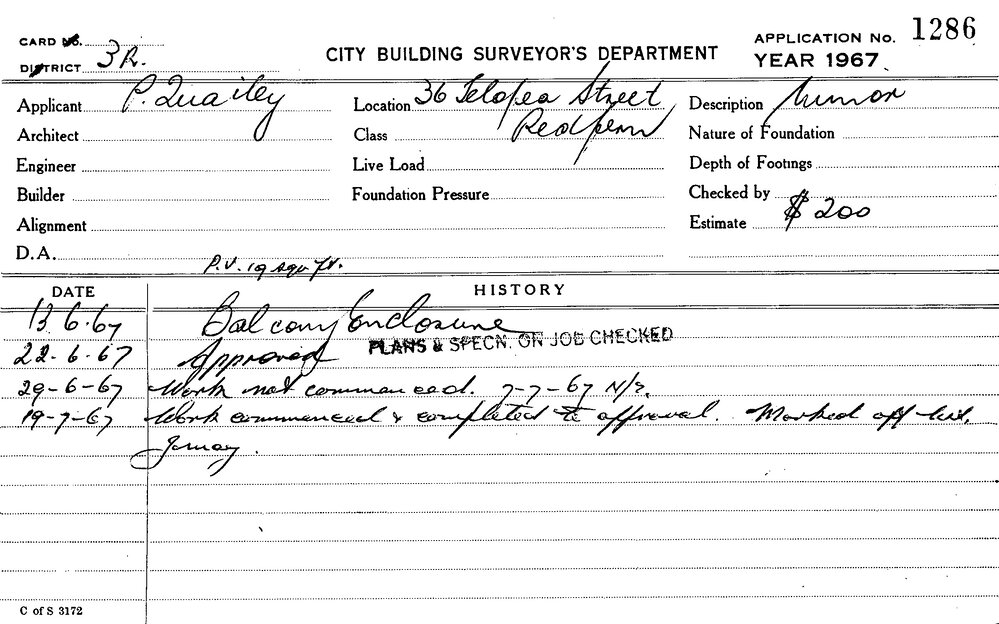 CARD No. APPLICATION No. 1286
DISTRICT 3R. CITY BUILDING SURVEYOR'S DEPARTMENT YEAR 1967.
Applicant P. Quailey Location 36 Telopea Street Description Minor
Architect Class Redfern Nature of Foundation
Engineer Live Load Depth of Footings
Builder Foundation Pressure Checked by
Alignment Estimate $ 200
D.A. P.V. 19 squ ft.
DATE HISTORY
13.6.67 Balcony Enclosure
22-6-67 Approved PLANS & SPECN. ON JOB CHECKED
29-6-67 Work not commenced. 7-7-67 N/S.
19-7-67 Work commenced & completed to approval. Marked off list.
C of S 3172